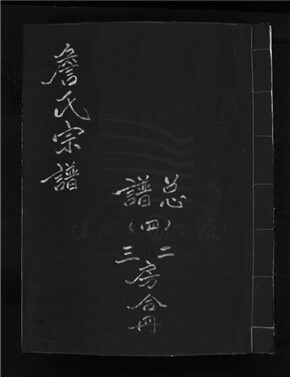 詹氏宗譜
总譜
（四）
二三房合冊